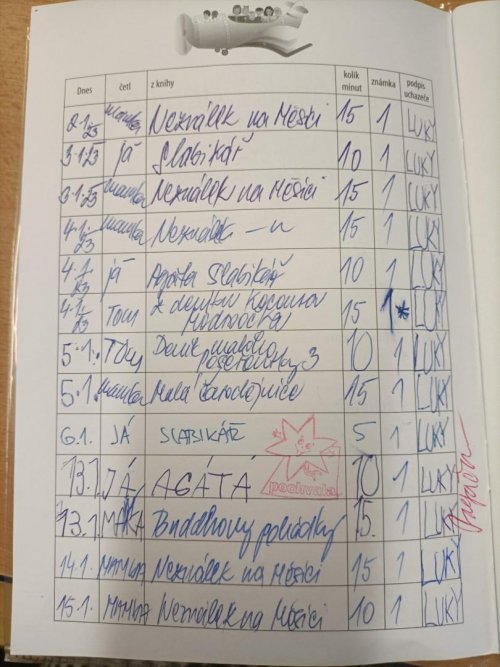 Dnes četl z knihy kolik minut známka podpis uchazeče
2.1.23 mamka Neználek na Měsíci 15 1 LUKY
3.1.23 já Slabikář 10 1 LUKY
3.1.23 mamka Neználek na Měsíci 15 1 LUKY
4.1.23 mamka Neználek -"- 15 1 LUKY
4.1.23 já Agáta Slabikář 10 1 LUKY
4.1.23 Tom z deníku kocoura Modroočka 15 1* LUKY
5.1. Tom Deník malého poseroutky 3 10 1 LUKY
5.1. mamka Malá čarodějnice 15 1 LUKY
6.1. JÁ SLABIKÁŘ 5 1 LUKY
pochvala
13.1 JÁ AGÁTÁ 10 1 LUKY
13.1 Buddhovy pohádky 15. 1 LUKY
14.1. MAMKA Neználek na Měsíci 15 1 LUKY
15.1. MAMKA Neználek na Měsíci 10 1 LUKY